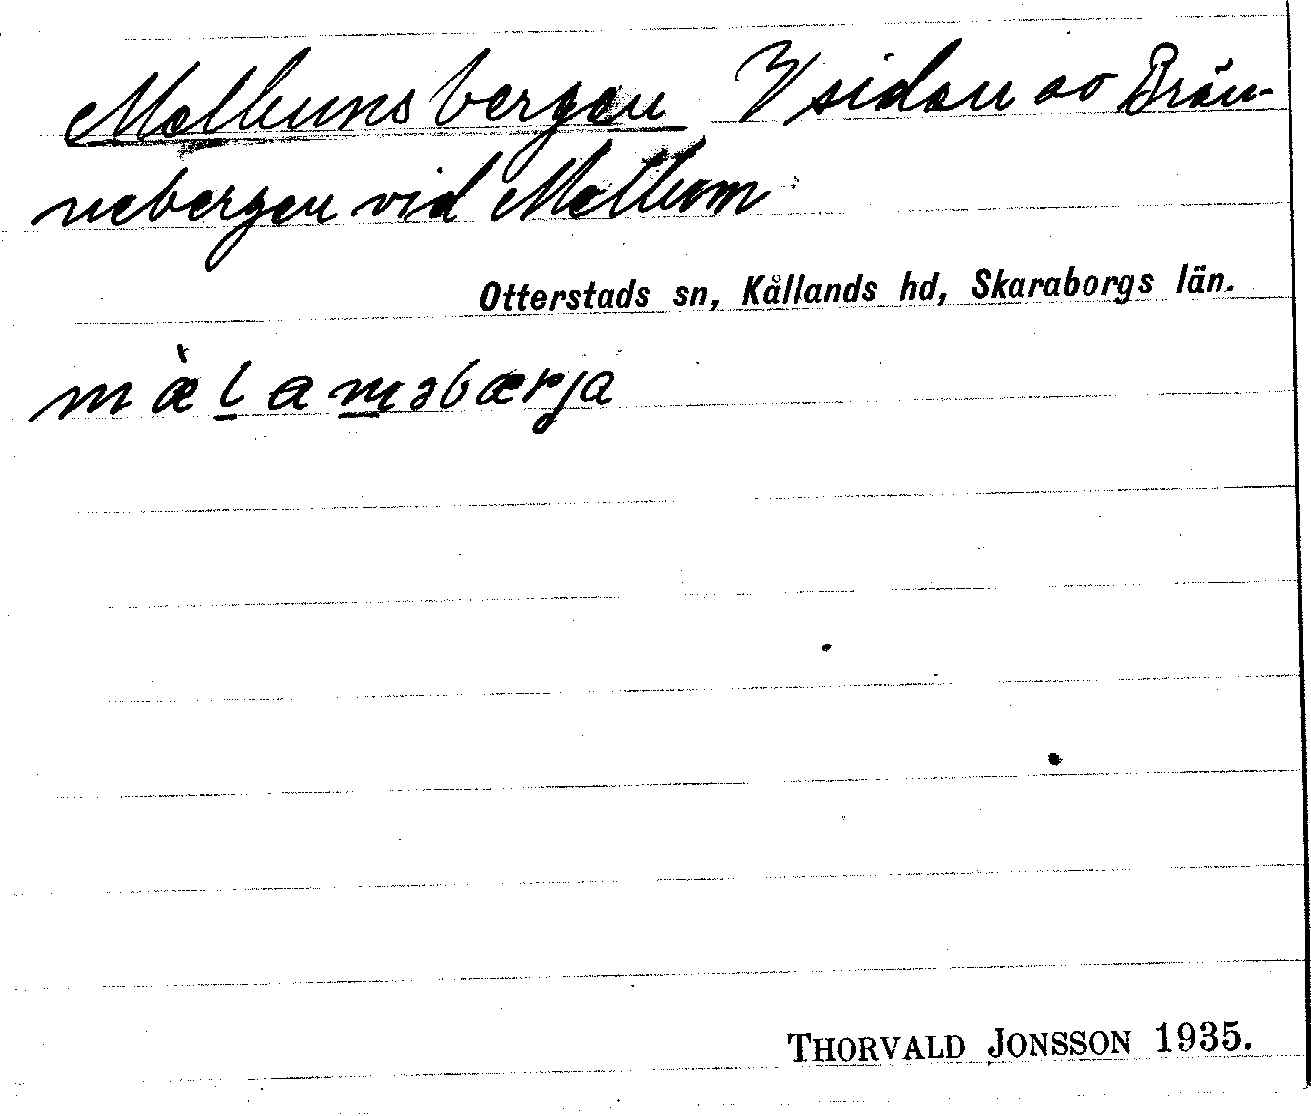 Mellums bergen V sidan av Brän-
nebergen vid Mellom
Otterstads sn, Kållands hd, Skaraborgs län.
mæ̀l a msbærja
THORVALD JONSSON 1935.